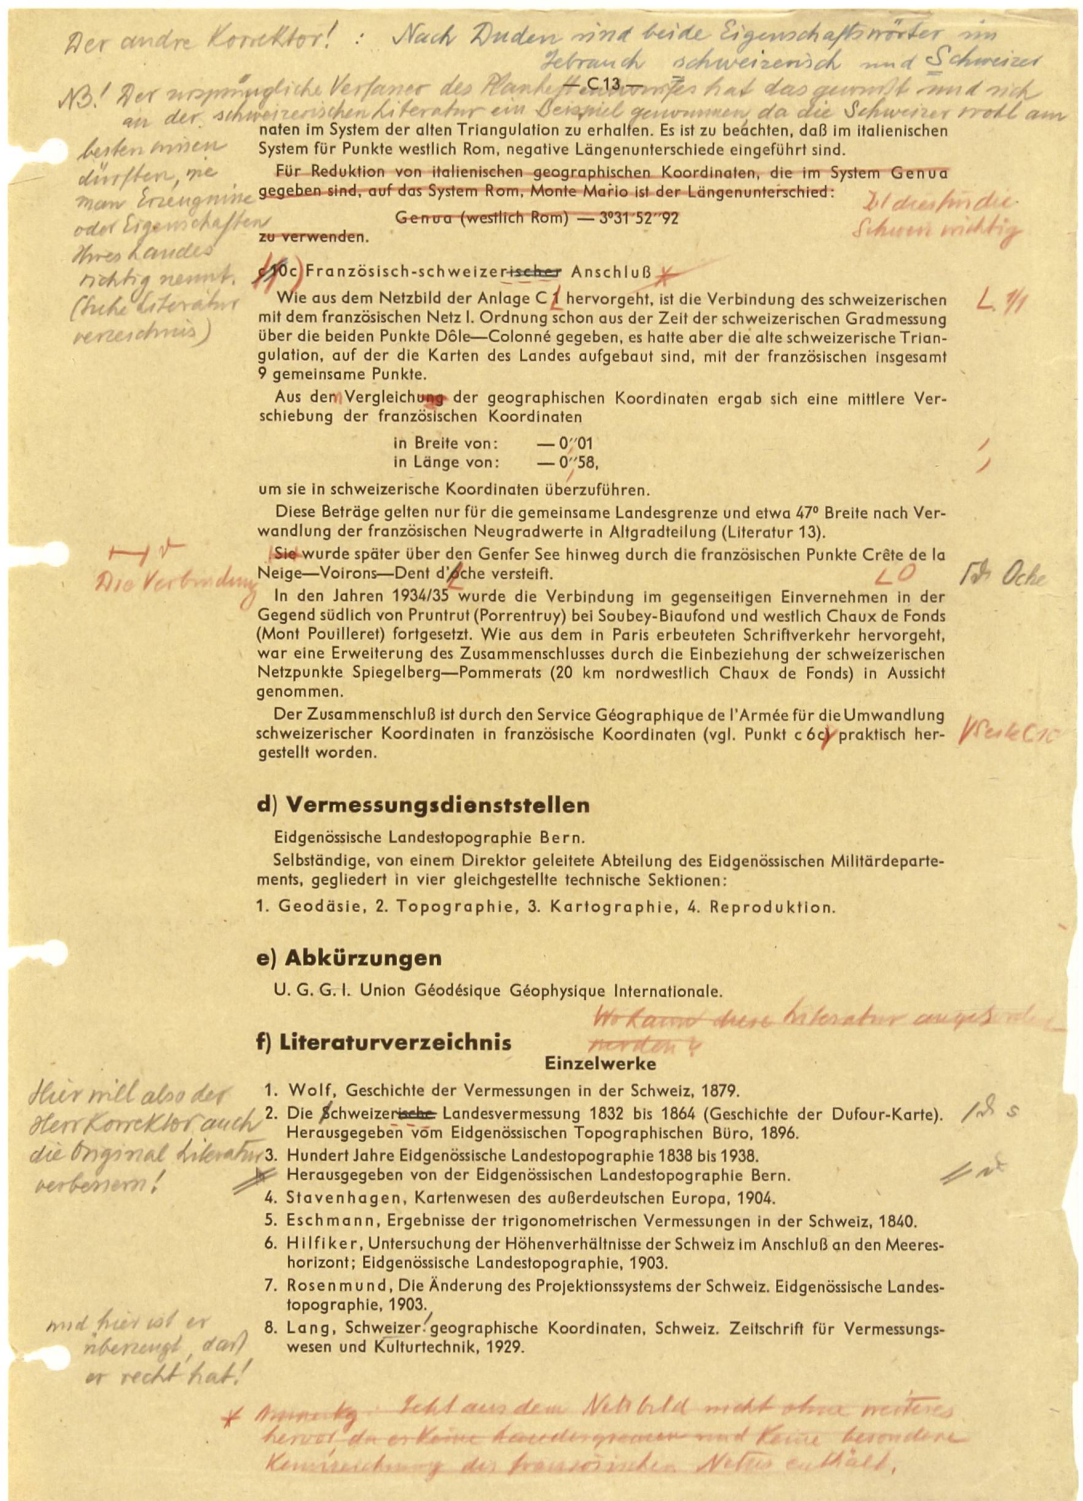 Der andre Korrektor! : Nach Duden sind beide Eigenschaftswörter im
Gebrauch schweizerisch und Schweizer
— C 13 —
NB! Der ursprüngliche Verfasser des Planheftentwurfes hat das gewußt und sich
an der schweizerischen Literatur ein Beispiel genommen, da die Schweizer wohl am
besten wissen
dürften, wie
man Erzeugnisse
oder Eigenschaften
Ihres Landes
richtig nennt.
(Siehe Literatur
verzeichnis)
naten im System der alten Triangulation zu erhalten. Es ist zu beachten, daß im italienischen
System für Punkte westlich Rom, negative Längenunterschiede eingeführt sind.
Für Reduktion von italienischen geographischen Koordinaten, die im System Genua
gegeben sind, auf das System Rom, Monte Mario ist der Längenunterschied:
Ist dies für die
Schweiz wichtig
Genua (westlich Rom) — 3⁰31′52″92
zu verwenden.
c 10c) Französisch-schweizerischer Anschluß *
Wie aus dem Netzbild der Anlage C 1 hervorgeht, ist die Verbindung des schweizerischen
mit dem französischen Netz I. Ordnung schon aus der Zeit der schweizerischen Gradmessung
über die beiden Punkte Dôle—Colonné gegeben, es hatte aber die alte schweizerische Trian-
gulation, auf der die Karten des Landes aufgebaut sind, mit der französischen insgesamt
9 gemeinsame Punkte.
Aus den Vergleichung der geographischen Koordinaten ergab sich eine mittlere Ver-
schiebung der französischen Koordinaten
in Breite von: — 0″01
in Länge von: — 0″58,
um sie in schweizerische Koordinaten überzuführen.
Diese Beträge gelten nur für die gemeinsame Landesgrenze und etwa 47⁰ Breite nach Ver-
wandlung der französischen Neugradwerte in Altgradteilung (Literatur 13).
Die Verbindung
Sie wurde später über den Genfer See hinweg durch die französischen Punkte Crête de la
Neige—Voirons—Dent d'Oche versteift.
O
Oche
In den Jahren 1934/35 wurde die Verbindung im gegenseitigen Einvernehmen in der
Gegend südlich von Pruntrut (Porrentruy) bei Soubey-Biaufond und westlich Chaux de Fonds
(Mont Pouilleret) fortgesetzt. Wie aus dem in Paris erbeuteten Schriftverkehr hervorgeht,
war eine Erweiterung des Zusammenschlusses durch die Einbeziehung der schweizerischen
Netzpunkte Spiegelberg—Pommerats (20 km nordwestlich Chaux de Fonds) in Aussicht
genommen.
Der Zusammenschluß ist durch den Service Géographique de l'Armée für die Umwandlung
schweizerischer Koordinaten in französische Koordinaten (vgl. Punkt c 6c) praktisch her-
gestellt worden.
Seite C 10
d) Vermessungsdienststellen
Eidgenössische Landestopographie Bern.
Selbständige, von einem Direktor geleitete Abteilung des Eidgenössischen Militärdeparte-
ments, gegliedert in vier gleichgestellte technische Sektionen:
1. Geodäsie, 2. Topographie, 3. Kartographie, 4. Reproduktion.
e) Abkürzungen
U. G. G. I. Union Géodésique Géophysique Internationale.
Wo kann diese Literatur angefordert
werden?
f) Literaturverzeichnis
Einzelwerke
Hier will also der
Herr Korrektor auch
die Original Literatur
verbessern!
1. Wolf, Geschichte der Vermessungen in der Schweiz, 1879.
2. Die Schweizerische Landesvermessung 1832 bis 1864 (Geschichte der Dufour-Karte).
Herausgegeben vom Eidgenössischen Topographischen Büro, 1896.
s
3. Hundert Jahre Eidgenössische Landestopographie 1838 bis 1938.
Herausgegeben von der Eidgenössischen Landestopographie Bern.
4. Stavenhagen, Kartenwesen des außerdeutschen Europa, 1904.
5. Eschmann, Ergebnisse der trigonometrischen Vermessungen in der Schweiz, 1840.
6. Hilfiker, Untersuchung der Höhenverhältnisse der Schweiz im Anschluß an den Meeres-
horizont; Eidgenössische Landestopographie, 1903.
7. Rosenmund, Die Änderung des Projektionssystems der Schweiz. Eidgenössische Landes-
topographie, 1903.
8. Lang, Schweizer! geographische Koordinaten, Schweiz. Zeitschrift für Vermessungs-
wesen und Kulturtechnik, 1929.
und hier ist er
überzeugt, daß
er recht hat!
* Geht aus dem Netzbild nicht ohne weiteres
hervor da es keine Landesgrenzen und keine besondere
Kennzeichnung des französischen Netzes enthält.